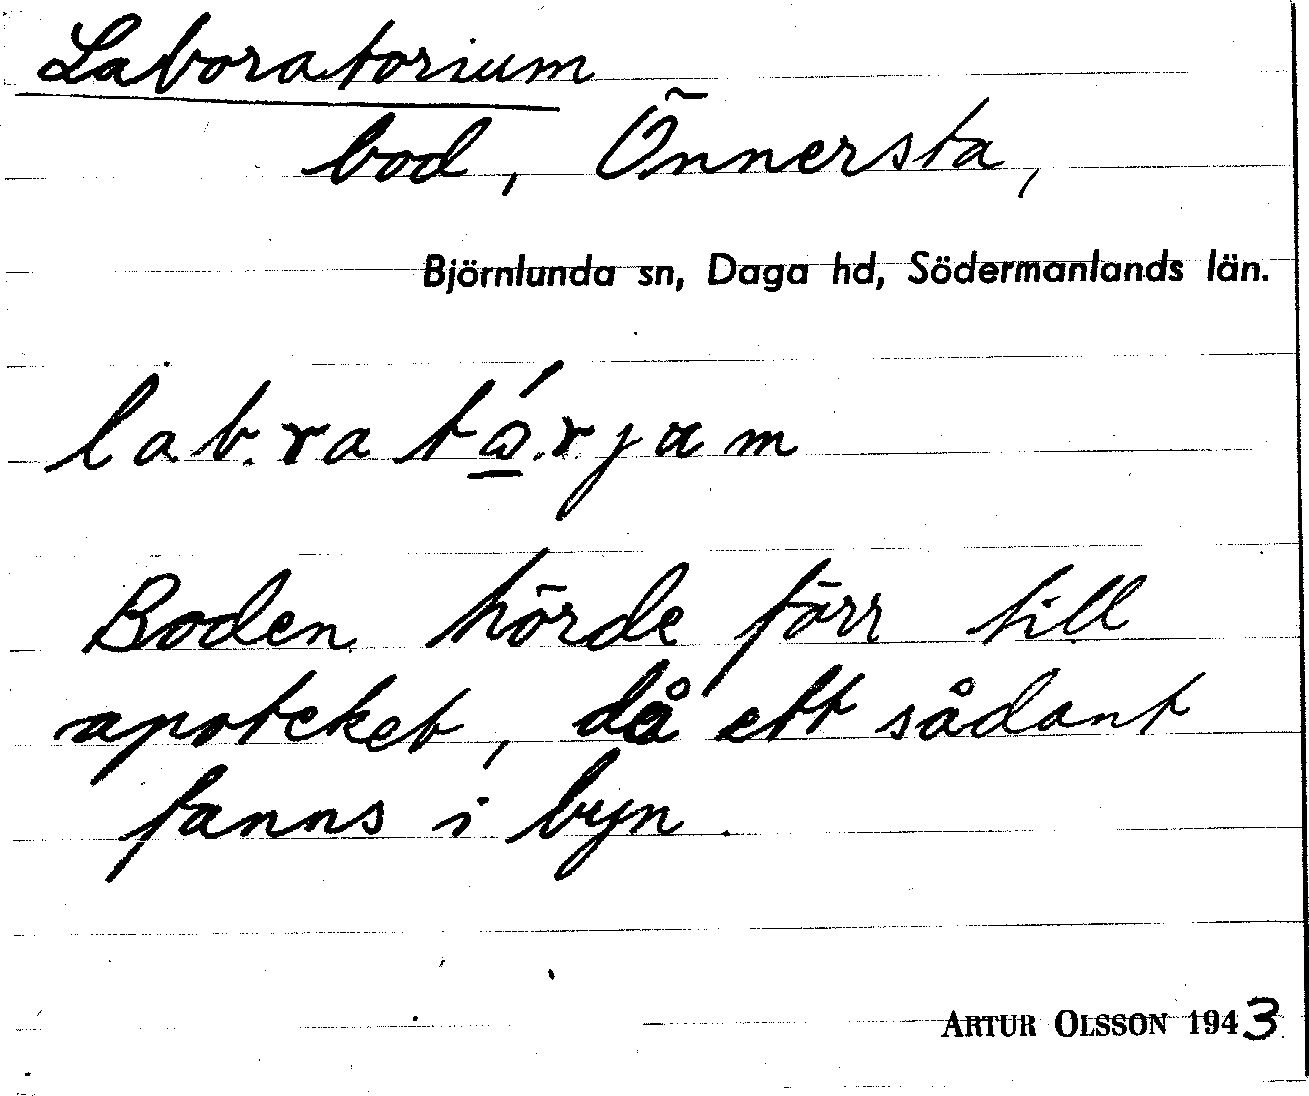 Laboratorium
bod, Önnersta,
Björnlunda sn, Daga hd, Södermanlands län.
Boden hörde förr till
apoteket, då ett sådant
fanns i byn.
ARTUR OLSSON 1943